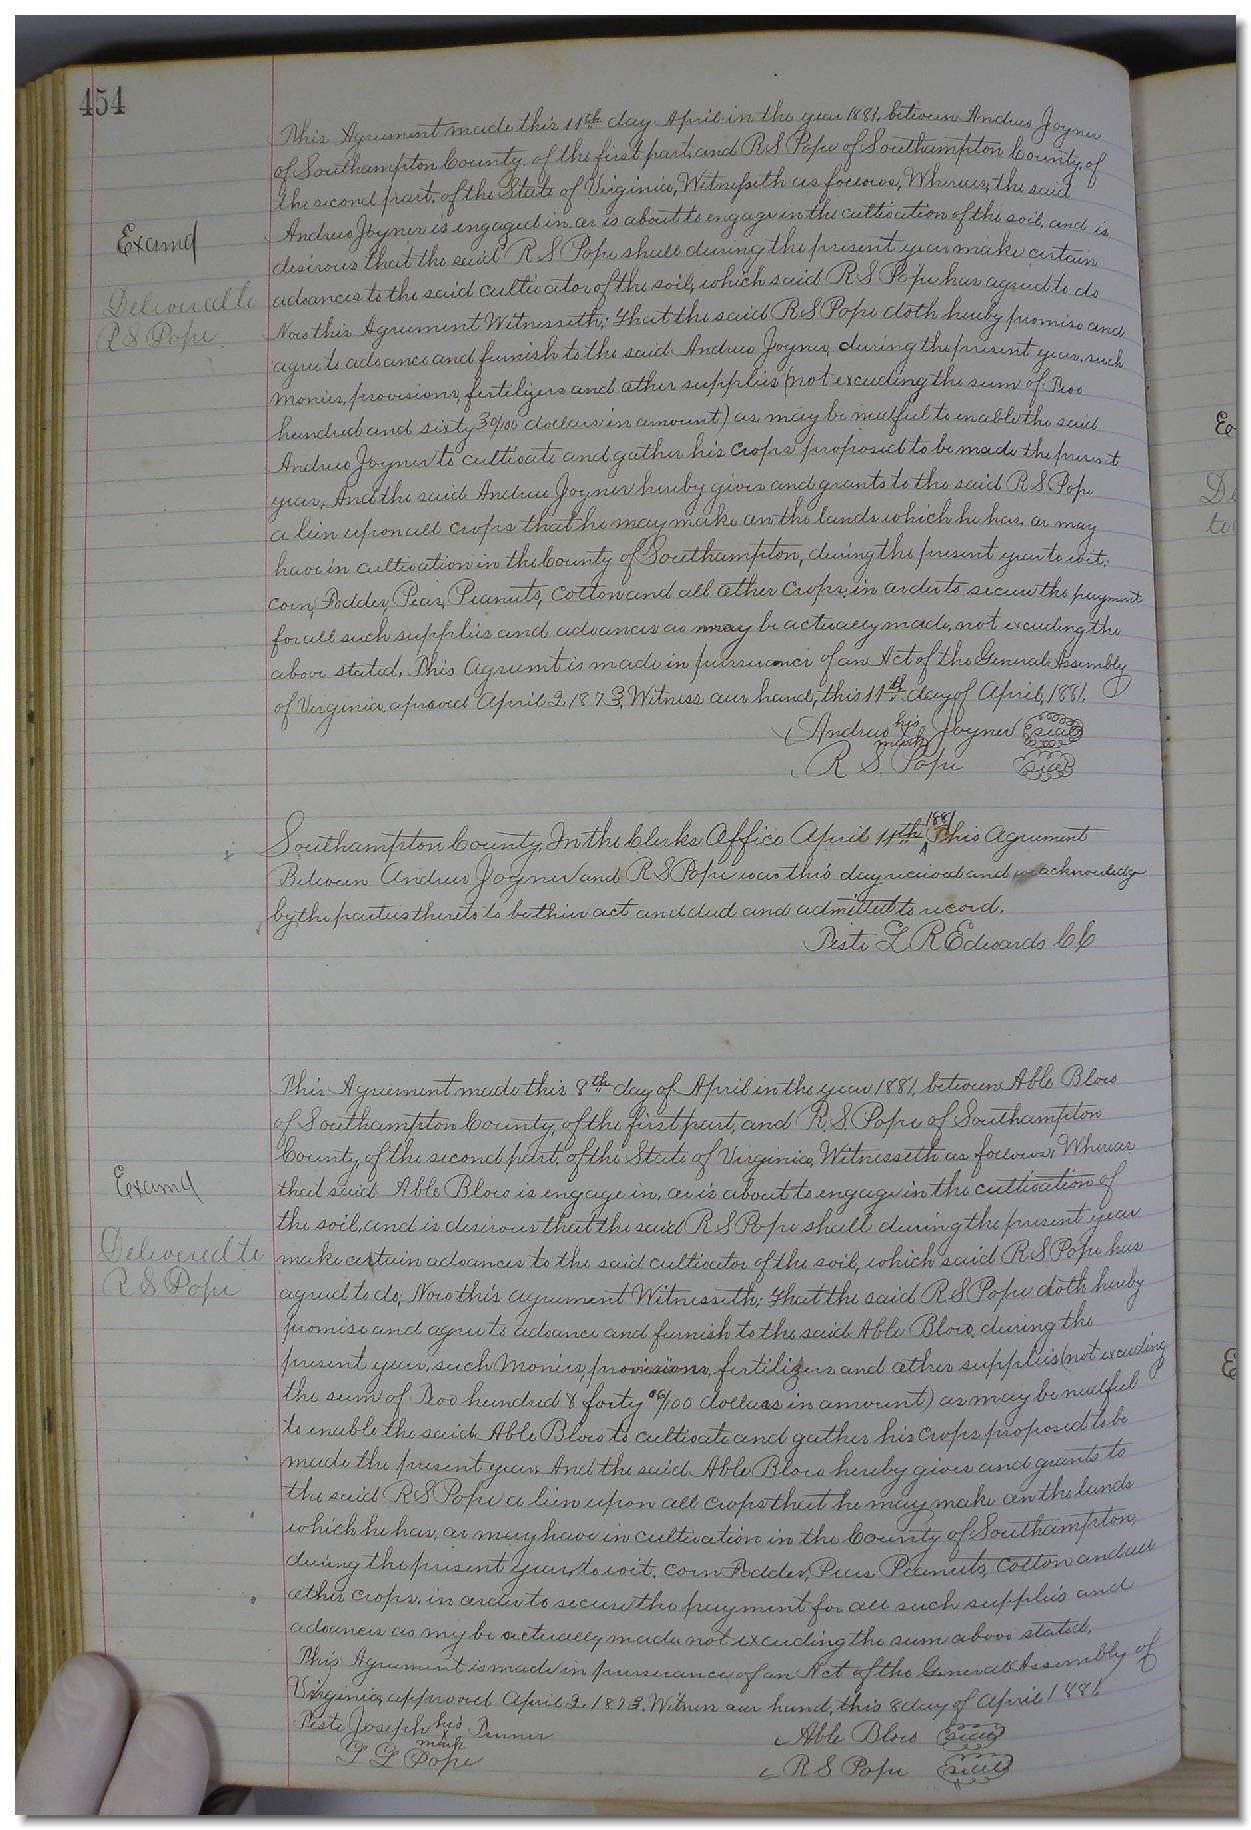 454
This Agreement made this 11th day April in the year 1881, between Andrew Joyner
of Southampton County of the first part, and R S Pope of Southampton County, of
the second part, of the State of Virginia, Witnesseth as follows, Whereas, the said
Andrew Joyner is engaged in, or is about to engage in the cultivation of the soil, and is
Examd
desirous that the said R S Pope shall during the present year make certain
advances to the said cultivator of the soil, which said R S Pope has agreed to do
Delivered to
R S Pope
Now this Agreement Witnesseth; That the said R S Pope doth hereby promise and
agree to advance and furnish to the said Andrew Joyner, during the present year, such
monies, provisions, fertilizers and other supplies (not exceeding the sum of Two
hundred and sixty 30/100 dollars in amount) as may be needful to enable the said
Andrew Joyner to cultivate and gather his crops proposed to be made the present
year, And the said Andrew Joyner hereby gives and grants to the said R S Pope
a lien upon all crops that he may make on the lands which he has, or may
have in cultivation in the County of Southampton, during the present year to wit:
corn, Fodder, Peas, Peanuts, Cotton and all other Crops, in order to secure the payment
for all such supplies and advances as may be actually made, not exceeding the
above stated, This Agreemt is made in pursuance of an Act of the General Assembly
of Virginia aproved April 2 1873, Witness our hand, this 11th day of April, 1881.
Andrew his mark Joyner seal
R S. Pope seal
Southampton County, In the Clerks Office April 11th 1881 This Agreement
Between Andrew Joyner and R S Pope was this day received and acknowledg
by the parties thereto to be their act and deed and admitted to record.
Teste L R Edwards CC
This Agreement made this 8th day of April in the year 1881, between Able Blow
of Southampton County, of the first part, and R, S. Pope of Southampton
County, of the second part, of the State of Virginia, Witnesseth as follows, Whereas
Examd
that said Able Blow is engage in, or is about to engage in the cultivation of
the soil, and is desirous that the said R S Pope shall during the present year
Delivered to
R S Pope
make certain advances to the said cultivator of the soil, which said R S Pope has
agreed to do, Now this agreement Witnesseth; That the said R S Pope doth hereby
promise and agree to advance and furnish to the said Able Blow, during the
present year, such Monies, provisions, fertilizers and other supplies (not exceeding
the sum of Two hundred & forty 00/100 dollars in amount) as may be needful
to enable the said Able Blow to cultivate and gather his crops proposed to be
made the present year. And the said Able Blow hereby gives and grants to
the said R S Pope a lien upon all crops that he may make on the lands
which he has, or may have in cultivation in the County of Southampton,
during the present year, to wit. corn Fodder, Peas Peanuts, Cotton and all
other crops, in order to secure the payment for all such supplies and
advances as my be actually made not exceeding the sum above stated.
This Agreement is made in pursuance of an Act of the General Assembly of
Virginia, approved April 2. 1873. Witness our hand, this 8 day of April 1881
Teste Joseph his mark Turner
G G Pope
Able Blow seal
R S Pope seal